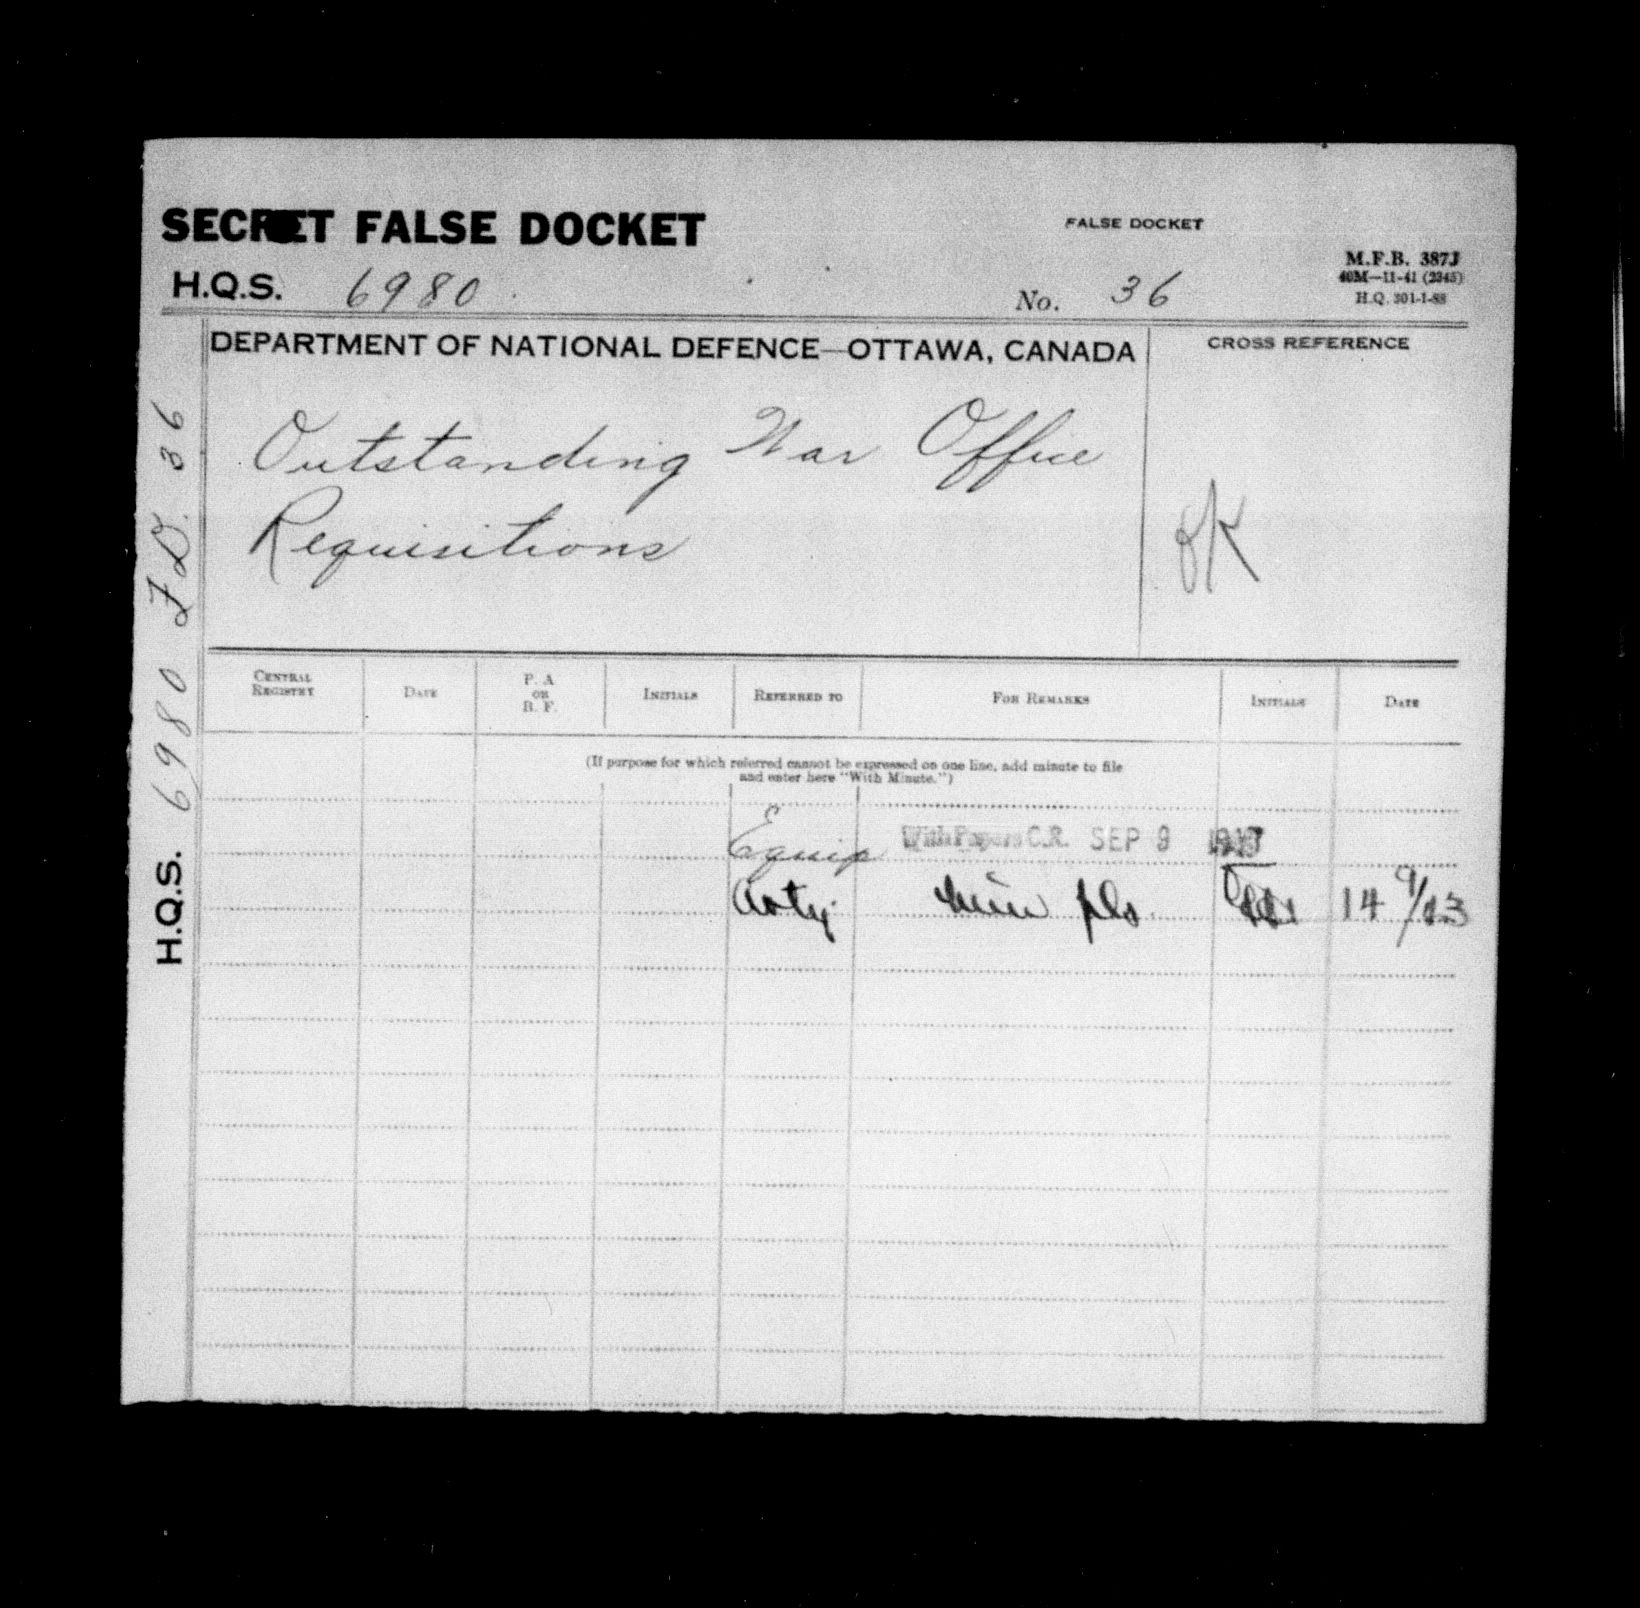 SECRET FALSE DOCKET
FALSE DOCKET
M.F.B. 387J
40M—11-41 (2345)
H.Q. 301-1-88
H.Q.S. 6980
No. 36
DEPARTMENT OF NATIONAL DEFENCE—OTTAWA, CANADA
CROSS REFERENCE
Outstanding War Office
Requisitions
H.Q.S. 6980 F.D. 36
CENTRAL REGISTRY
DATE
P. A OR B. F.
INITIALS
REFERRED TO
FOR REMARKS
INITIALS
DATE
(If purpose for which referred cannot be expressed on one line, add minute to file
and enter here "With Minute.")
Equip With Papers C.R. SEP 9
Arty. min pls 14 9/43